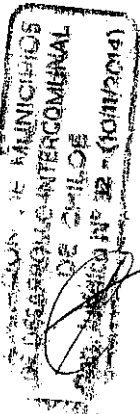 DE MUNICIPIOS
DE DESARROLLO INTERCOMUNAL
DE CHILOE
Nº 32 - (10/11/2014)